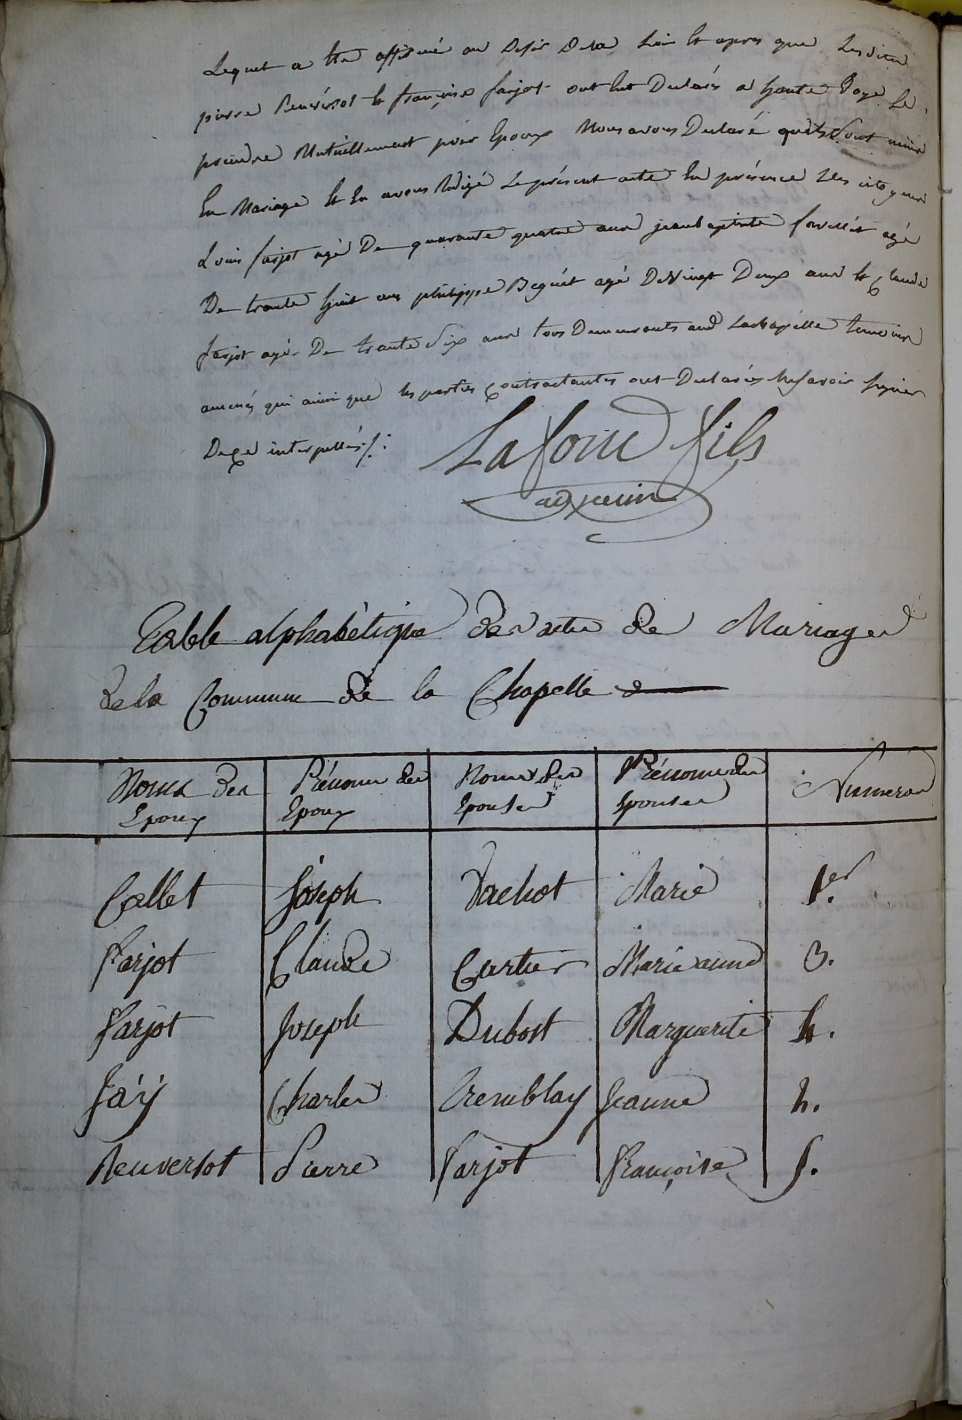 Lequel a été affiché au désir de la loi et apres que lesdits
pierre Reuversot et françoise farjot ont eut déclarés a haute voye se
prendre Mutuellement pour Epoux Nous avons Declaré qu'ils sont unis
En Mariage Et En avons Redigé Le présent acte En présence des citoyens
Louis farjot agé De quarante quatre ans jean baptiste agé
De trante huit ans philippe Beguét agé De Vingt Deux ans et Claude
farjot agé De trante six ans tous Demeurants aud Lachapelle temoins
amenés qui ainsi que les parties Contractantes ont Declarés ne savoir signer
De ce interpellés
Lafond fils
Table alphabétique des actes de Mariages
de la Commune de la Chapelle
Noms des Epoux Prénoms des Epoux Noms des Epouses Prénoms des Epouses Numeros
Callet Joseph Vachot Marie 1.er
Farjot Claude Cartier Marie anne 3.
Farjot Joseph Dubost Marguerite 4.
Jäÿ Charles Tremblay Jeanne 2.
Reuversot Pierre Farjot Françoise 5.